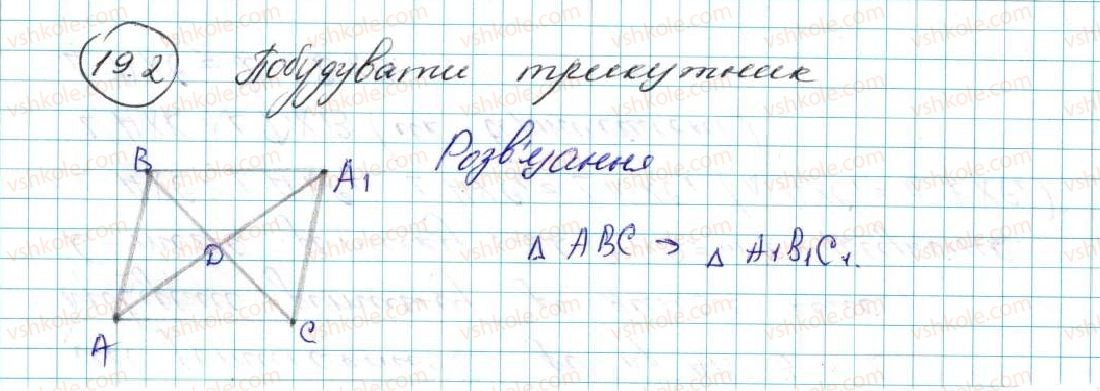 19.2 Побудувати трикутник
Розв'язання
B
A1
D
Δ ABC → Δ A1B1C1.
A
C